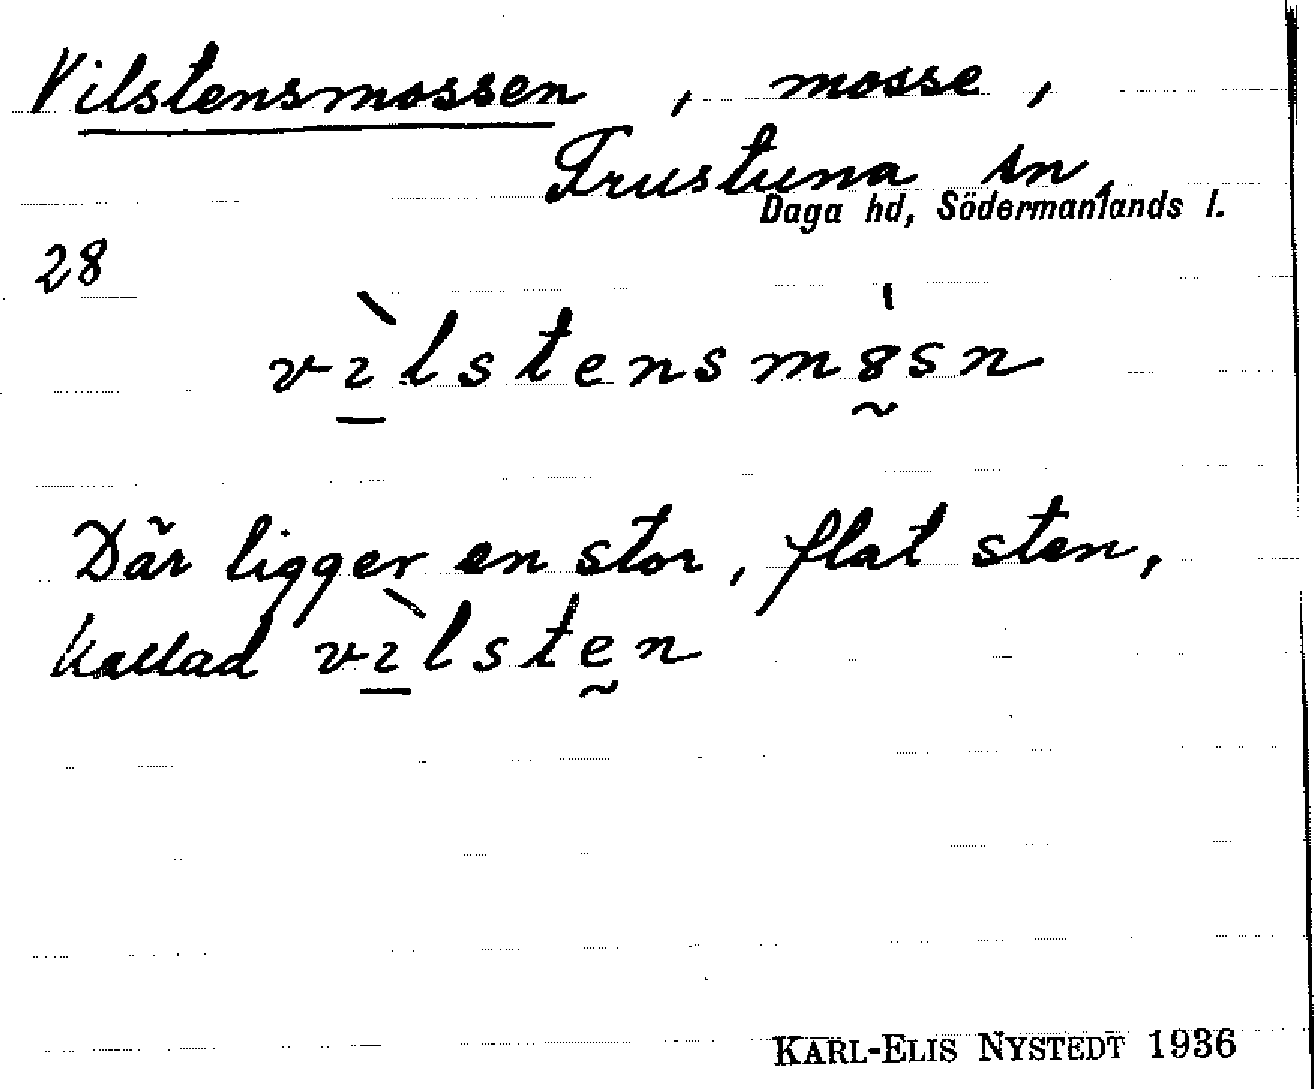 Vilstensmossen, mosse,
Frustuna sn,
Daga hd, Södermanlands l.
28
vɪ̠̀lstensmȣ̰sn
Där ligger en stor, flat sten,
kallad vɪ̠̀lstḛn
KARL-ELIS NYSTEDT 1936